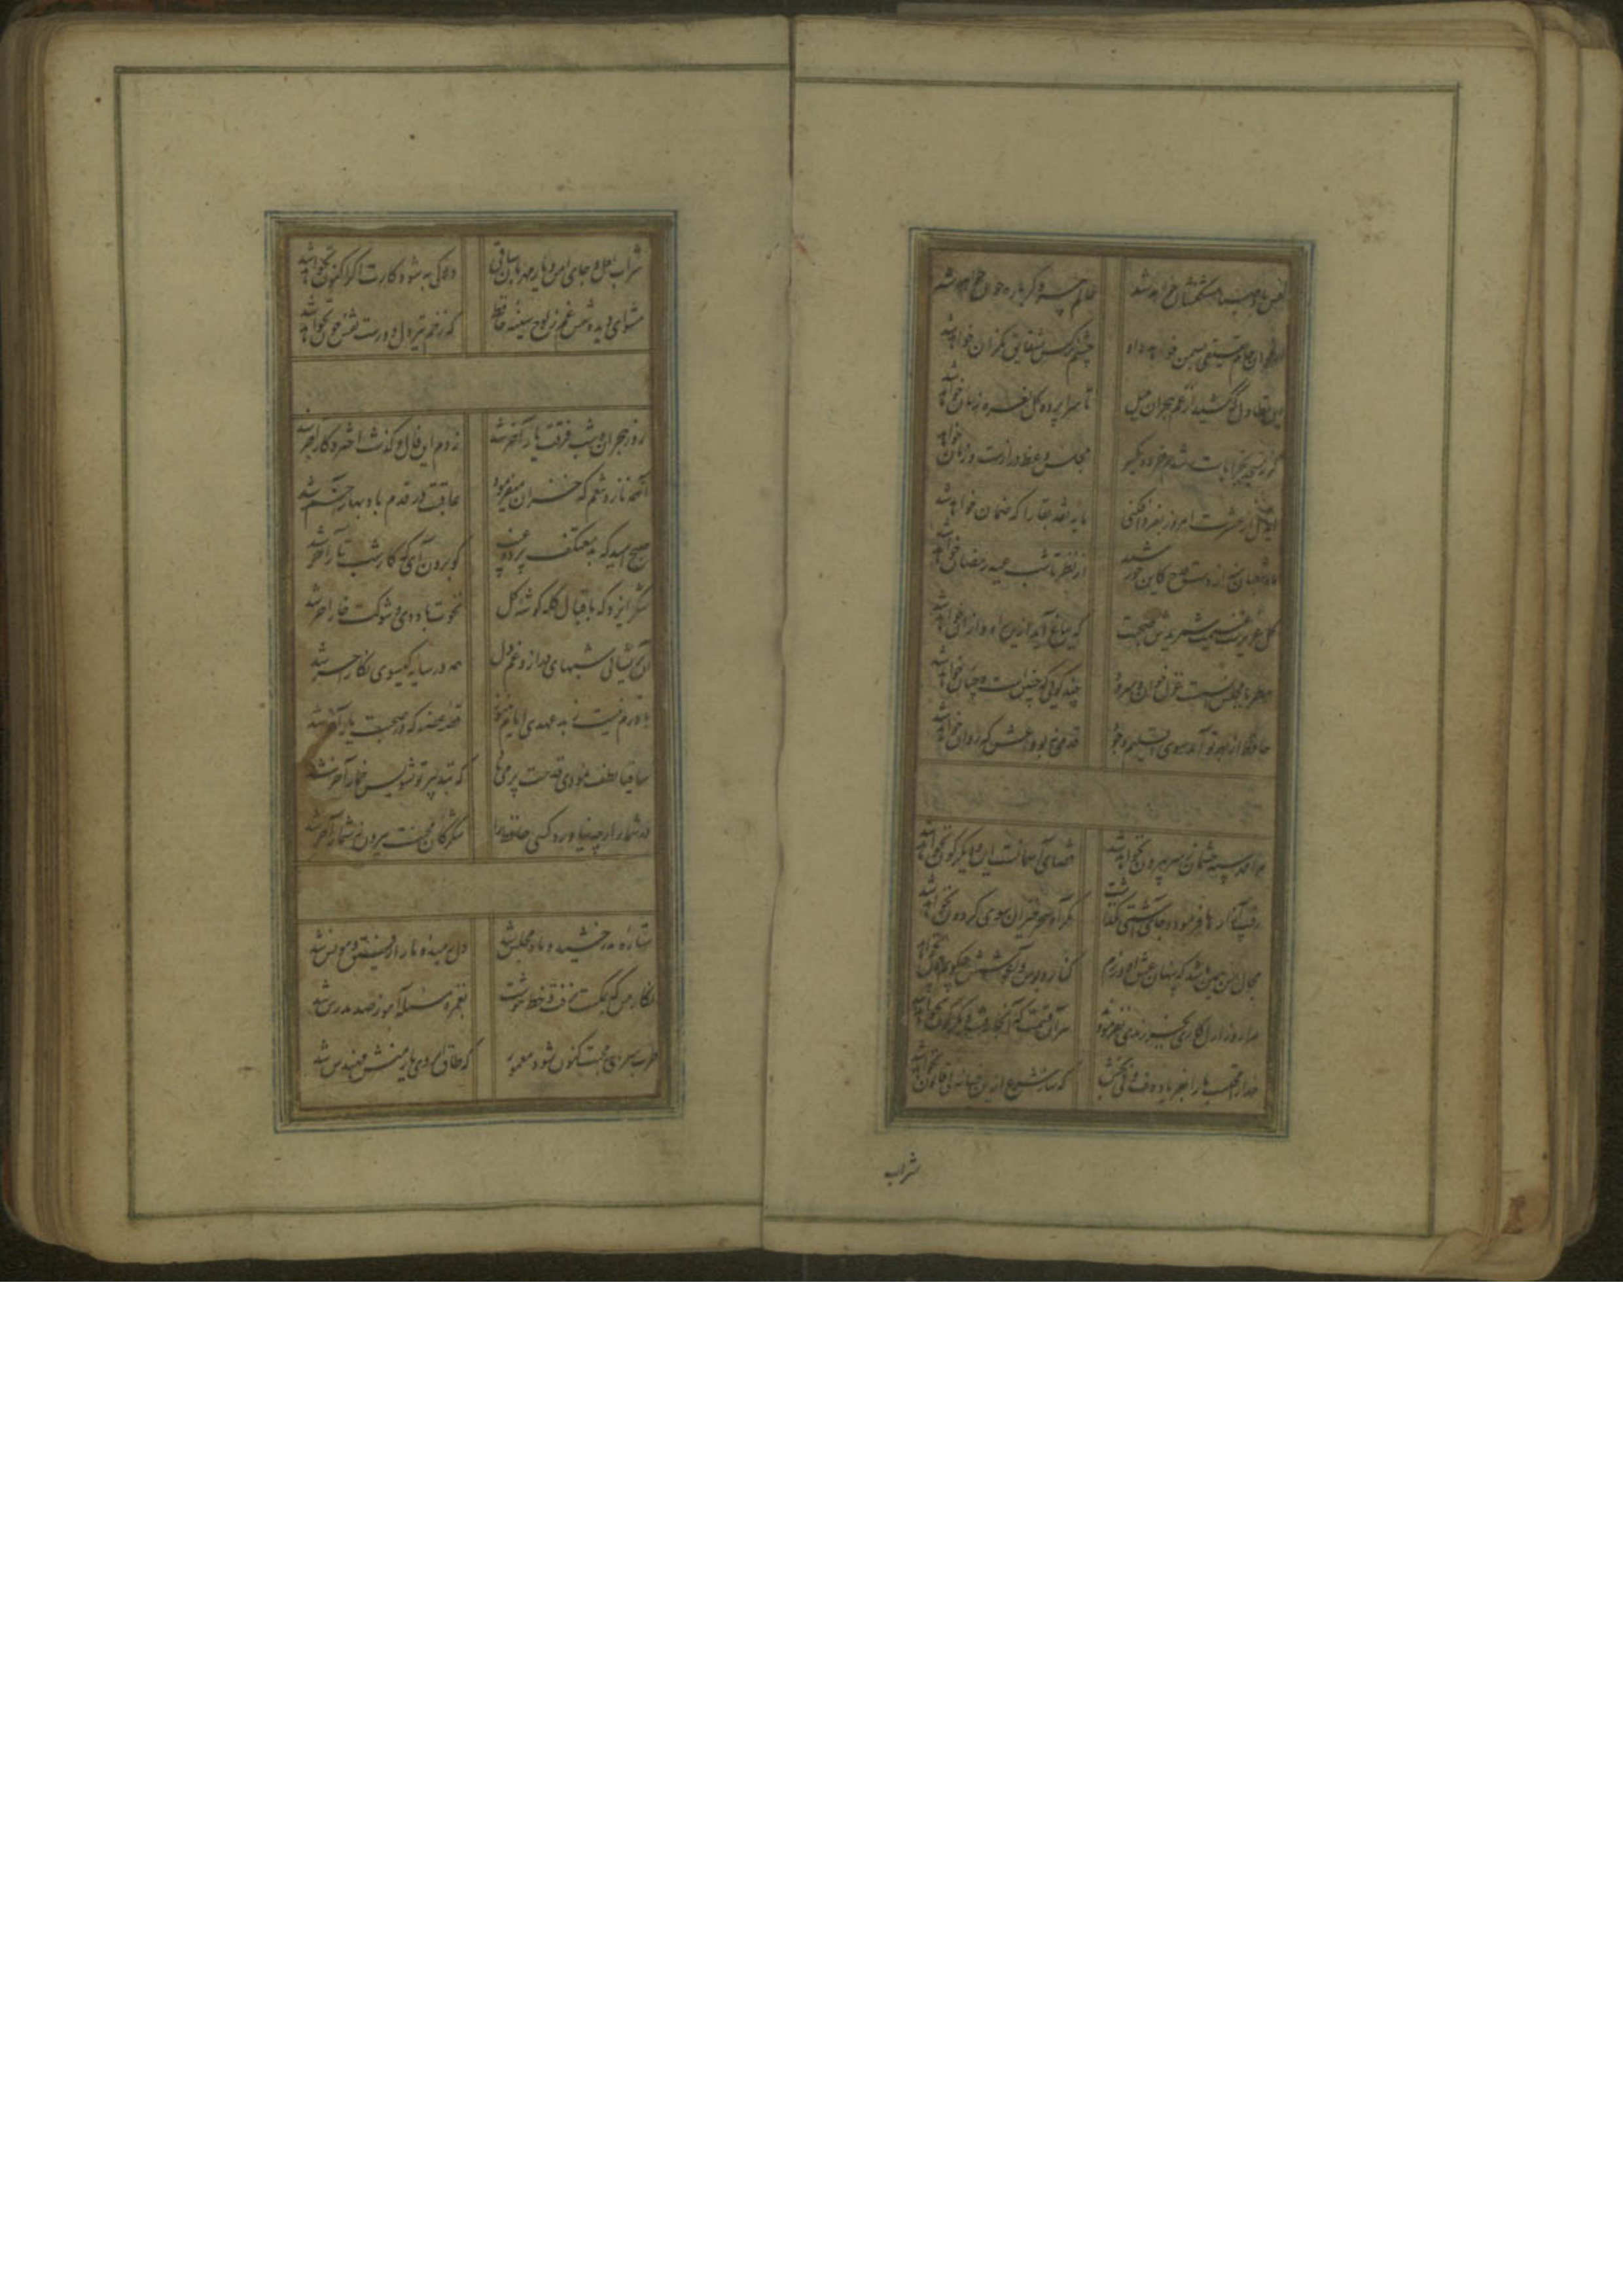 نفس باد صبا مشک فشان خواهد شد عالم پیر دگر باره جوان خواهد شد
ارغوان جام عقیقی بسمن خواهد داد چشم نرکس بشقایق نکران خواهد شد
این تطاول که کشید از غم هجران بلبل تا سراپرده کل نعره زنان خواهد شد
کر ز مسجد بخرابات شدم خرده مکیر مجلس وعظ درازست و زمان خواهد
ای دل ار عشرت امروز بفردا فکنی مایه نقد بقا را که ضمان خواهد شد
ماه شعبان منه از دست قدح کاین خورشید از نظر تا شب عید رمضان خواهد شد
کل عزیزست غنیمت شمریدش صحبت که بباغ آمد ازین راه و ازان خواهد شد
مطربا مجلس انست غزل خوان و سرود چند کوئی که چنین است و چنان خواهد شد
حافظ از بهر تو آمد سوی اقلیم وجود قدمی نه بوداعش که روان خواهد شد
مرا مهر سیه چشمان ز سر بیرون نخواهد شد قضای آسمانست این و دیکرکون نخواهد شد
رقیب آزارها فرمود و جای آشتی نکذاشت مکر آه سحرخیزان سوی کردون نخواهد شد
مجال من همین باشد که پنهان عشق او ورزم کنار و بوس و آغوشش چکویم چون نخواهد
مرا روز ازل کاری بجز رندی نفرمودند هر آن قسمت که آنجا رفت دیکرکون نخواهد شد
خدا را محتسب ما را بفریاد دف و نی بخش که ساز شرع ازین افسانه بی قانون نخواهد شد
شراب
شراب لعل و جای امن و یار مهربان ساقی دلا کی به شود کارت اکر اکنون نخواهد شد
مشوی ای دیده نقش غم ز لوح سینه حافظ که زخم تیر دلدارست نقش خون نخواهد شد
روز هجران و شب فرقت یار آخر شد زدم این فال و کذشت اختر و کار آخر شد
آن همه ناز و تنعم که خزان میفرمود عاقبت در قدم باد بهار آخر شد
صبح امید که بد معتکف پرده غیب کو برون آی که کار شب تار آخر شد
شکر ایزد که باقبال کله کوشه کل نخوت باد دی و شوکت خار آخر شد
آن پریشانی شبهای دراز و غم دل همه در سایه کیسوی نکار آخر شد
باورم نیست ز بدعهدی ایام هنوز قصه غصه که در صحبت یار آخر شد
ساقیا لطف نمودی قدحت پر می باد که بتدبیر تو تشویش خمار آخر شد
در شمار ار چه نیاورد کسی حافظ را شکر کان محنت بیرون ز شمار آخر شد
ستاره بدرخشید و ماه مجلس شد دل رمیده ما را رفیق و مونس شد
نکار من که بمکتب نرفت و خط ننوشت بغمزه مسئله آموز صد مدرس شد
طرب سرای محبت کنون شود معمور که طاق ابروی یار منش مهندس شد